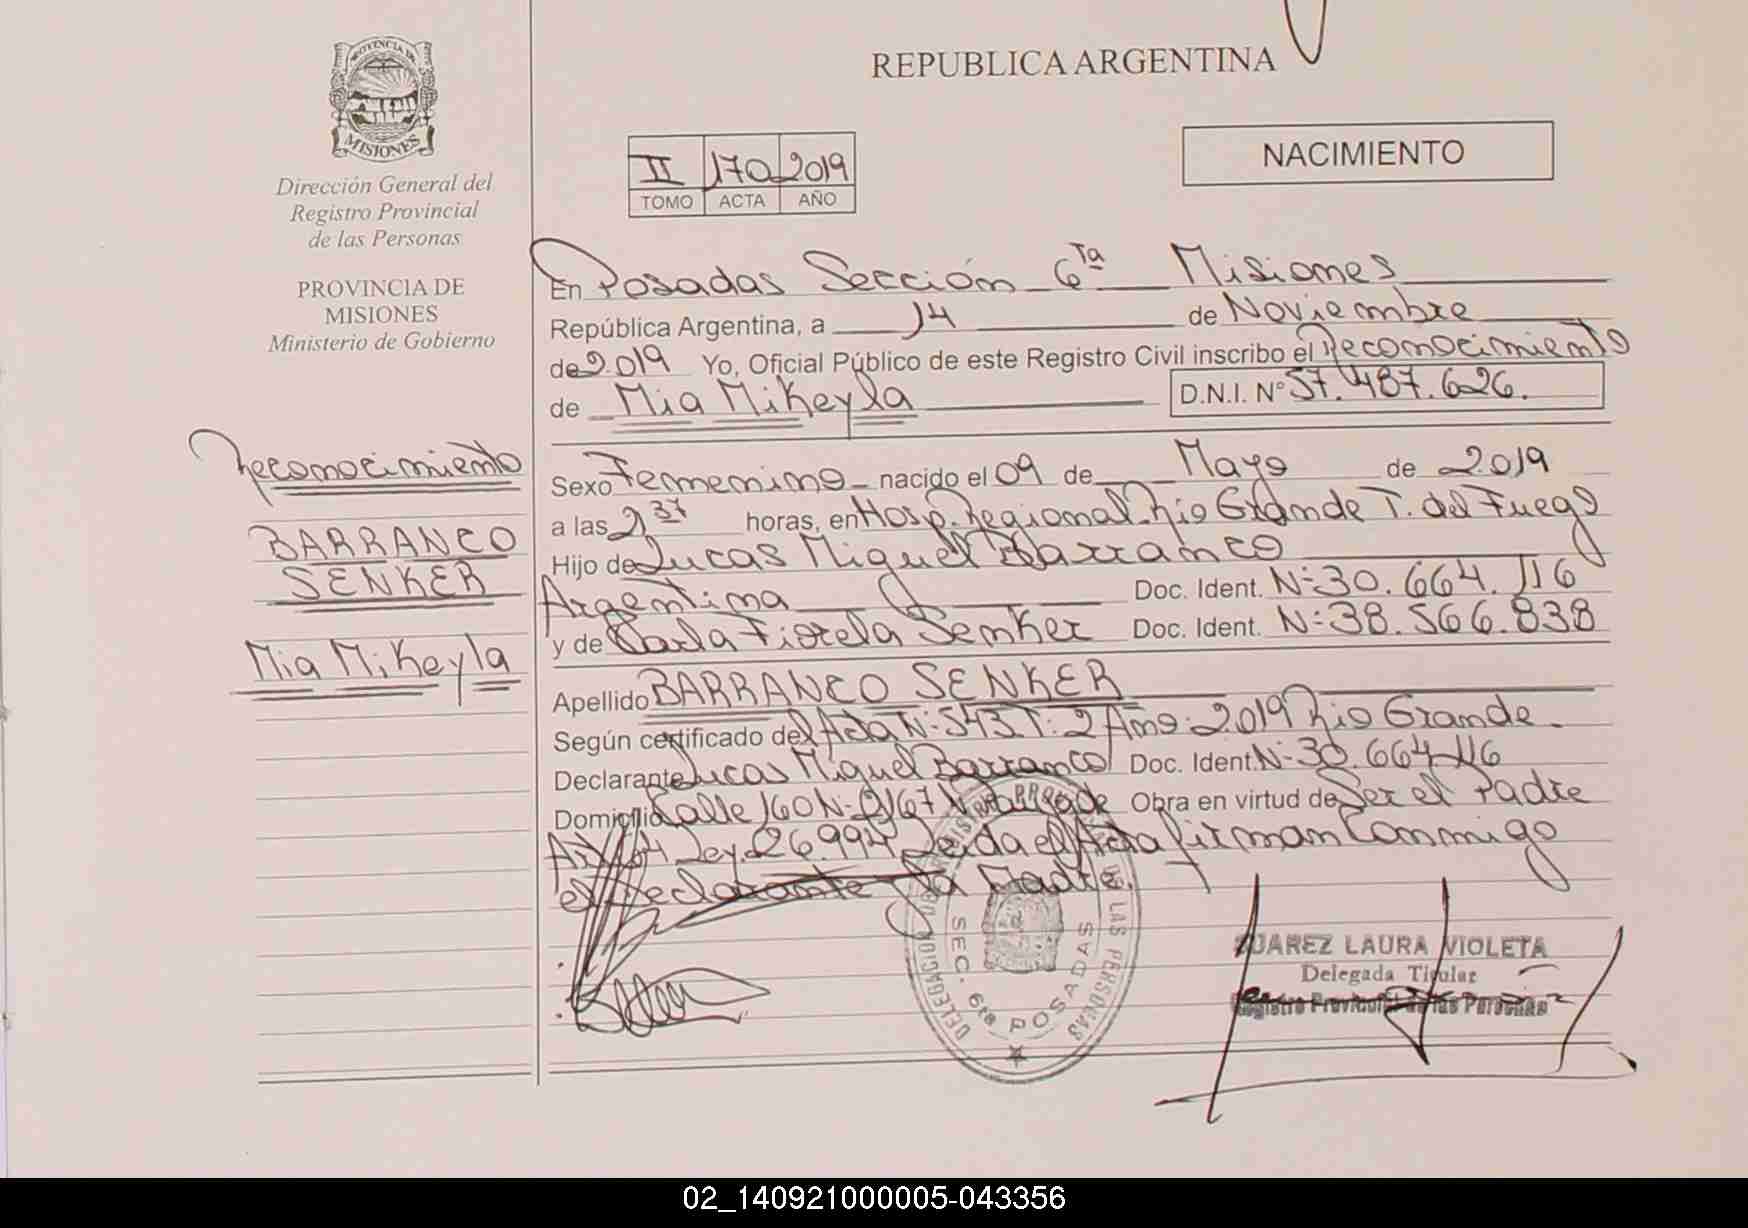 REPUBLICA ARGENTINA
PROVINCIA DE
MISIONES
Dirección General del
Registro Provincial
de las Personas
PROVINCIA DE
MISIONES
Ministerio de Gobierno
II 170 2019
TOMO ACTA AÑO
NACIMIENTO
En Posadas Sección 6ta Misiones
República Argentina, a 14 de Noviembre
de 2019 Yo, Oficial Público de este Registro Civil inscribo el Reconocimiento
de Mia Mikeyla D.N.I. N° 57.487.626.
Reconocimiento
BARRANCO
SENKER
Mia Mikeyla
Sexo Femenino nacido el 09 de Mayo de 2019
a las 2137 horas, en Hosp. Regional Rio Grande T. del Fuego
Hijo de Lucas Miguel Barranco
Argentina Doc. Ident. N: 30.664.116
y de Carla Fiorela Senker Doc. Ident. N: 38.566.838
Apellido BARRANCO SENKER
Según certificado del Acta N: 543 T: 2 Año: 2019 Rio Grande.
Declarante Lucas Miguel Barranco Doc. Ident. N: 30.664.116
Domicilio Calle 160 N: Obra en virtud de Ser el Padre
Art 64 Ley. 26.994 Leida el Acta firman Conmigo
el Declarante y la Madre.
DELEGACION DE REGISTRO DE LAS PERSONAS
SEC. 6ta POSADAS
SUAREZ LAURA VIOLETA
Delegada Titular
Registro Provincial de las Personas
02_140921000005-043356